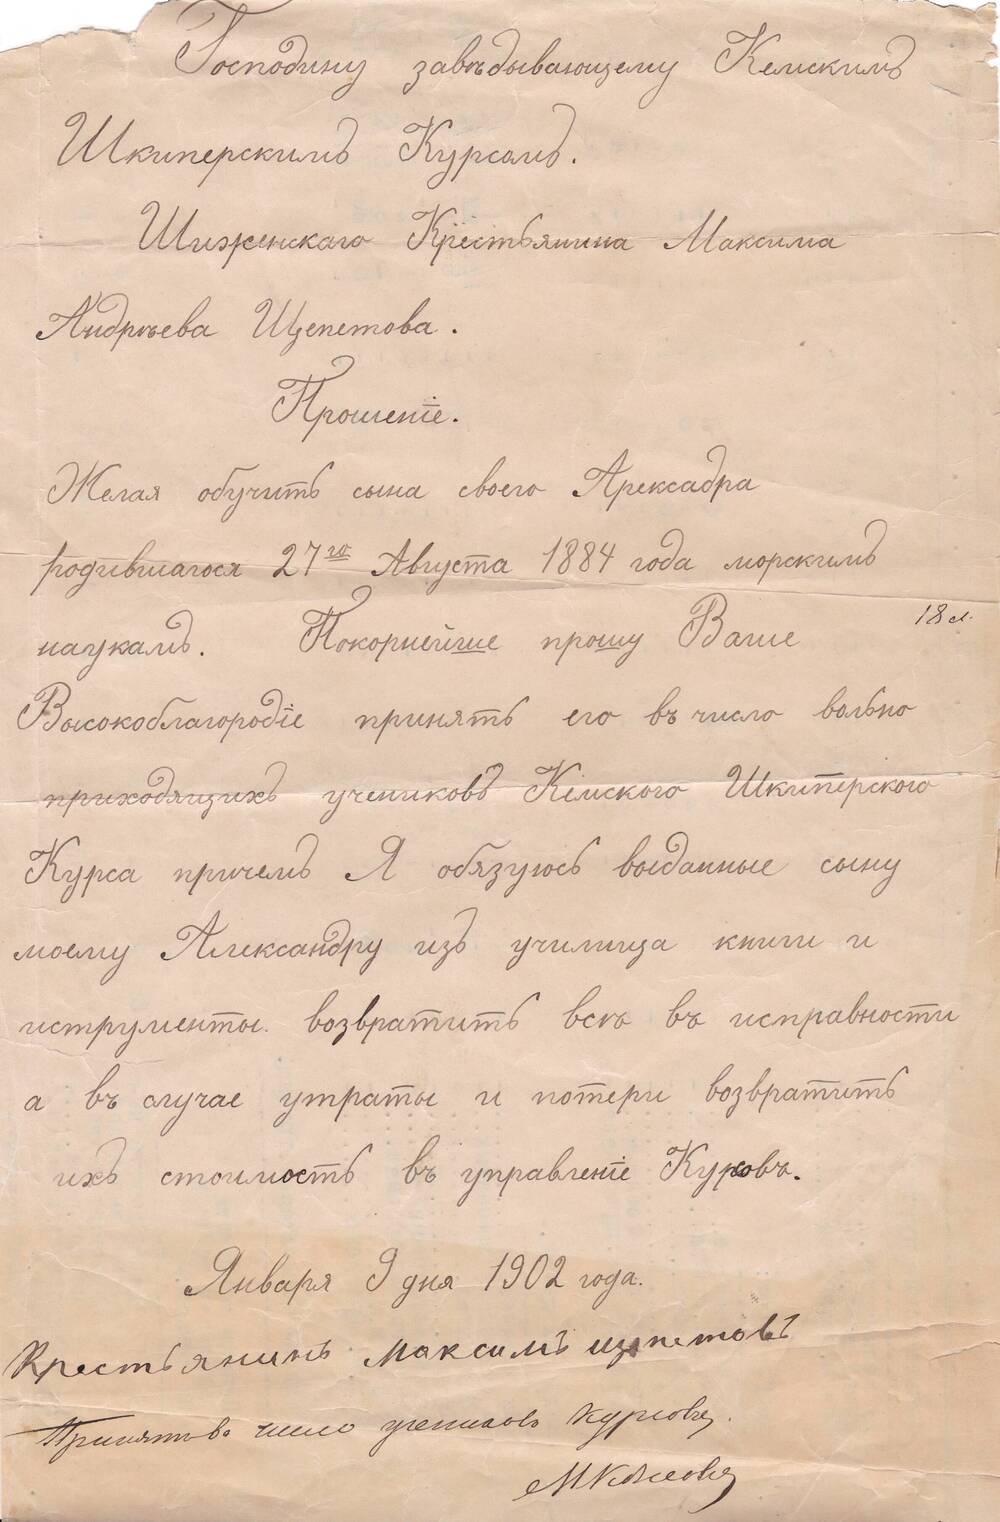 Господину завѣдывающему Кемскимъ
Шкиперскимъ Курсамъ.
Шиженскаго Крестьянина Максима
Андрѣева Щепетова.
Прошеніе.
Желая обучить сына своего Арексадра
родившагося 27го Августа 1884 года морскимъ
наукамъ. Покорнейше прошу Ваше
18 л.
Высокоблагородіе принять его въ число вольно
приходящихъ учениковъ Кемского Шкиперского
Курса причемъ Я обязуюсь выданные сыну
моему Александру изъ училища книги и
иструменты возвратить всѣ въ исправности
а въ случае утраты и потери возвратить
ихъ стоимость въ управленіе Курсовъ.
Января 9 дня 1902 года.
Крестьянинъ Максимъ щепетовъ
Принять въ число учениковъ курсовъ.